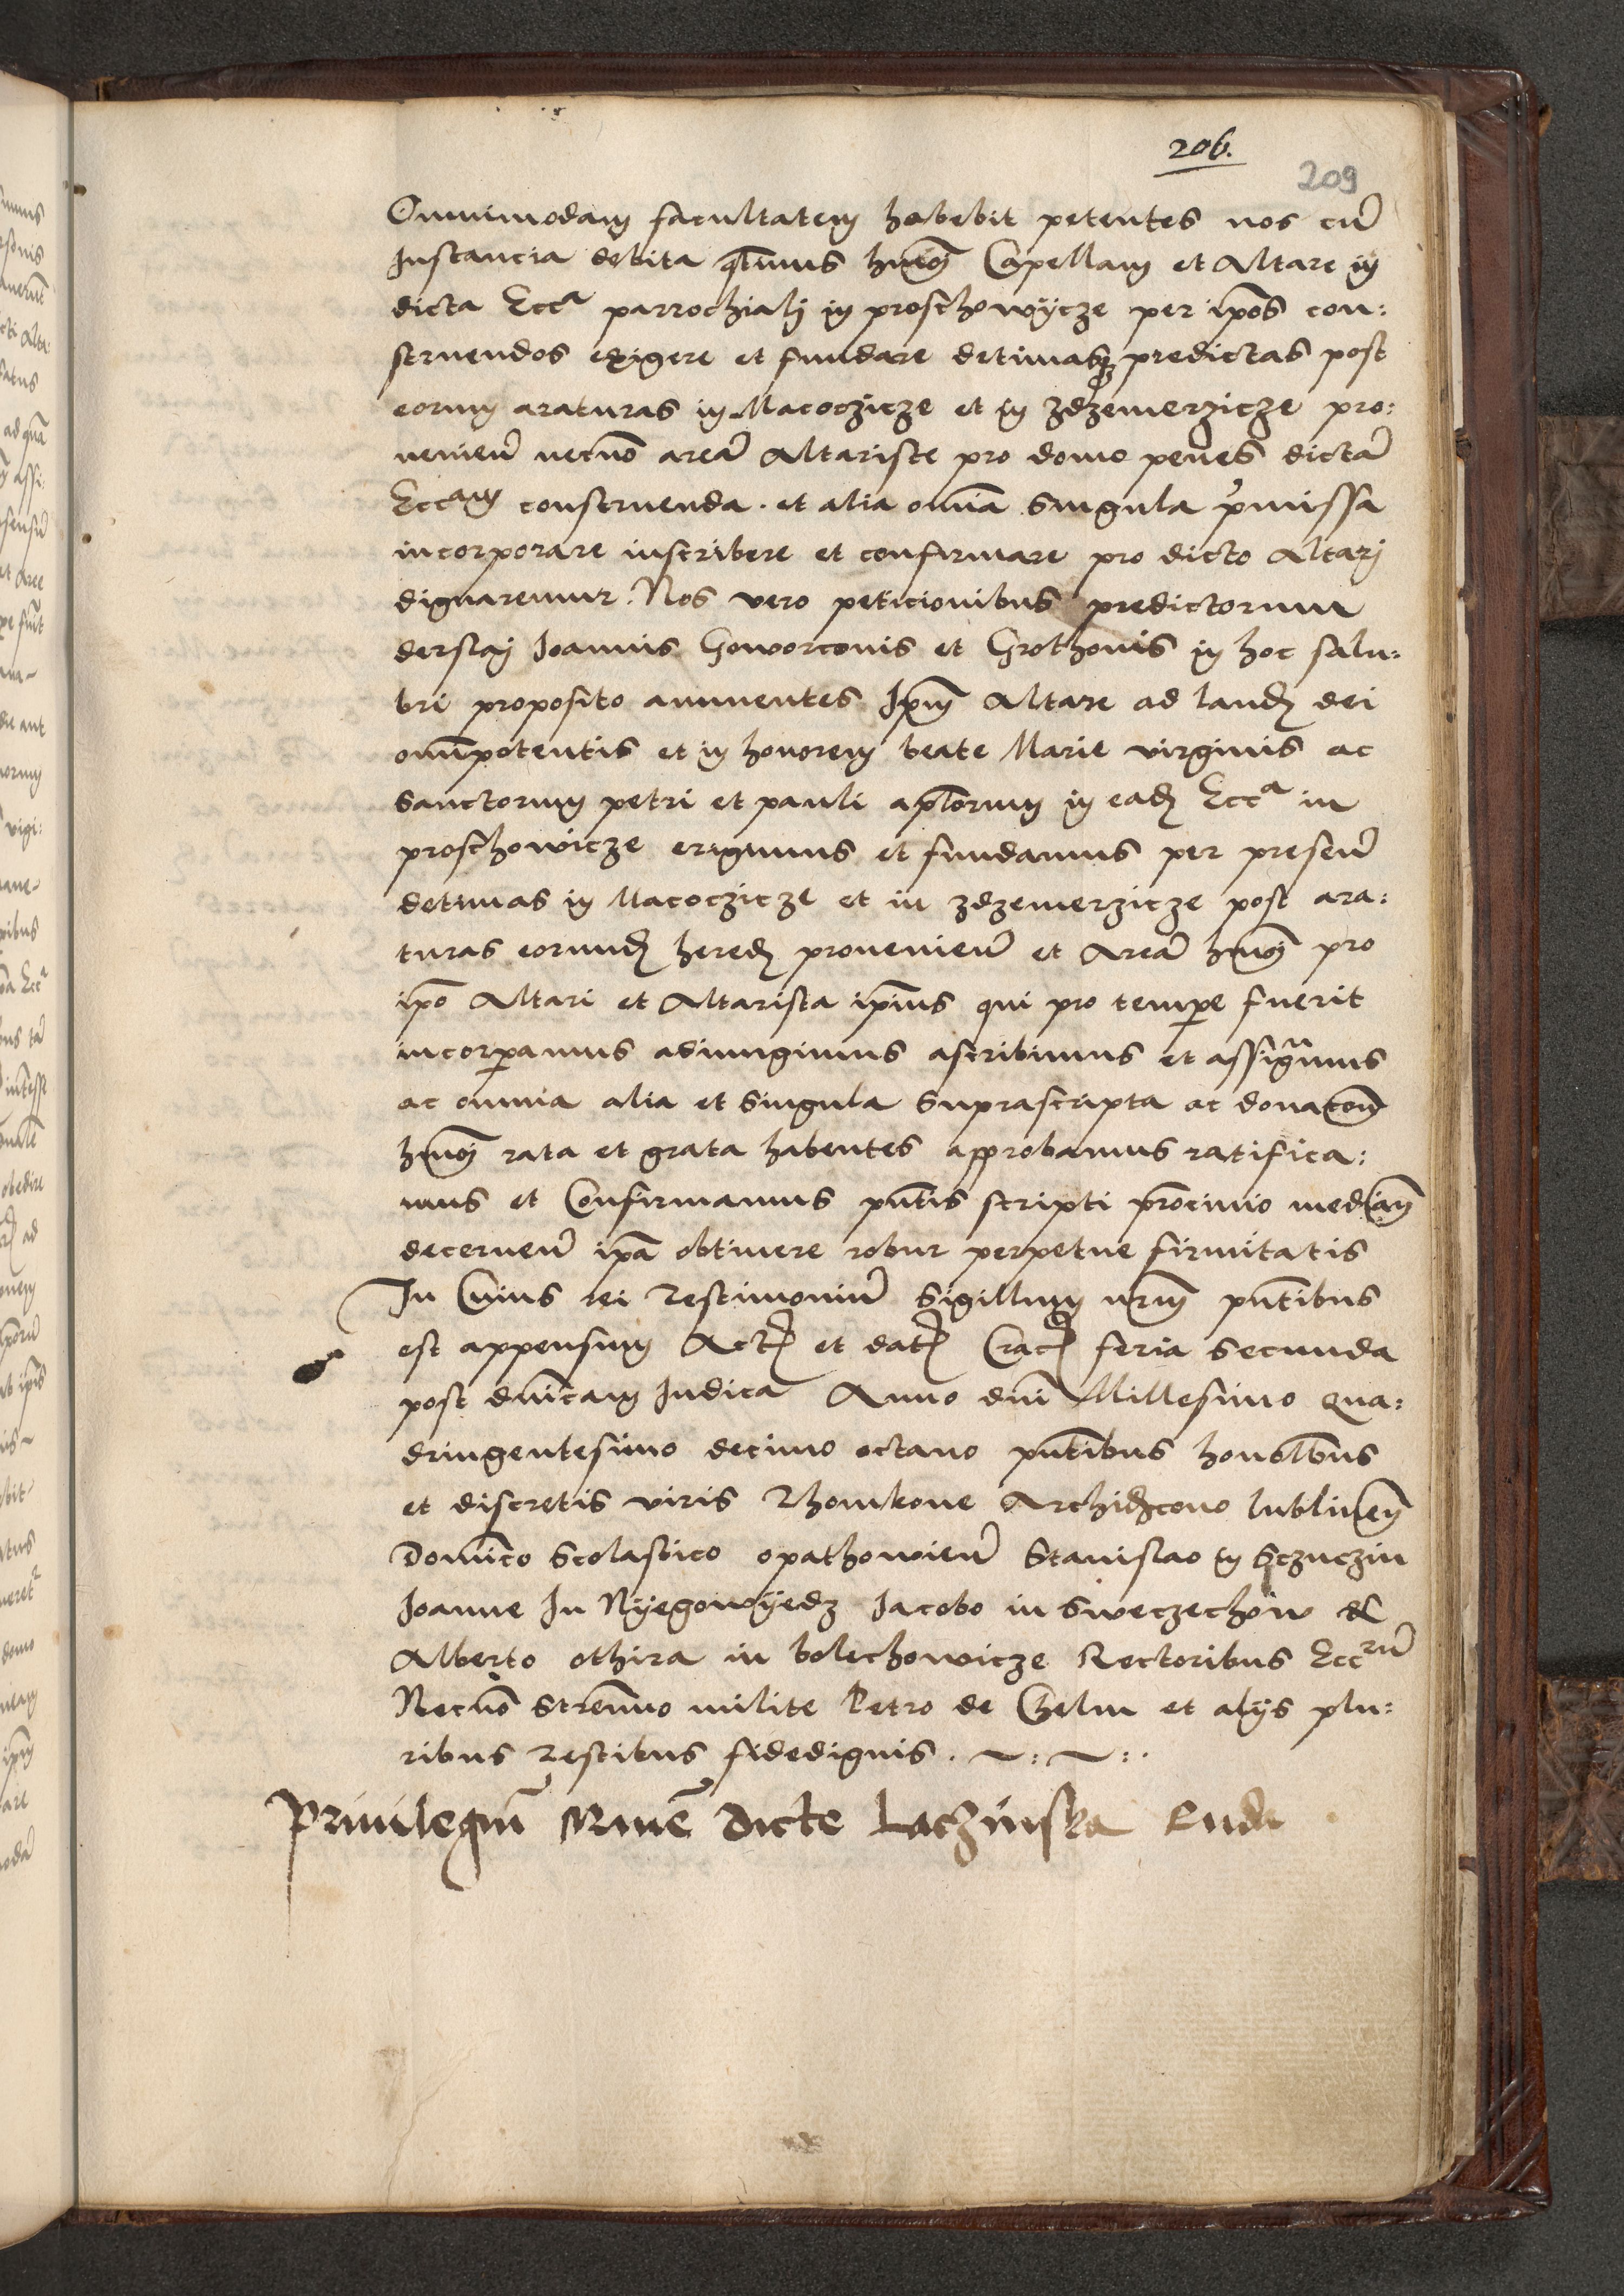 206.
209
Omnimodam facultatem habebit petentes nos cũ
Instancia debita q̃tinus hmõi Capellam et Altare in
dicta Eccᵃ parrochiali in proschowÿcze per ip̃os con:
struendos erigere et fundare decimasqʒ predictas post
eorum araturas in Macoczicze et in zdzemerzicze pro:
venieñ necnõ areã Altariste pro domo penes dictã
Eccᵃᵐ construenda. et alia om̃ia singula p̃missa
incorporare inscribere et confirmare pro dicto Altari
dignaremur. Nos vero peticionibus predictorum
derslai Joannis Goworconis et Grothonis in hoc salu:
bri proposito annuentes Ip̃m Altare ad laudẽ dei
om̃ipotentis et in honorem beate Marie virginis ac
sanctorum petri et pauli ap̃lorum in eadẽ Eccᵃ in
proschowicze erigimus et fundamus per preseñ
decimas in Macoczicze et in zdzemerzicze post ara:
turas eorundẽ heredũ provenieñ et Areã hmõi pro
ip̃o Altari et Altarista ip̃ius qui pro temp̃e fuerit
incorp̃amus adiungimus ascribimus et assig̃mus
ac omnia alia et singula suprascripta ac donacõem
hmõi rata et grata habentes approbamus ratifica:
mus et Confirmamus p̃ntis scripti p̃rocinio median̄
decerneñ ip̃a obtinere robur perpetue firmitatis
In Cuius rei Testimoniũ Sigillum nr̃m p̃ntibus
est appensum Actũ et datũ Cracõ feria Secunda
post dñicam Iudica Anno dñi Millesimo qua:
dringentesimo decimo octavo p̃ntibus honolbus
et discretis viris Thomkone Archidẽcono lublineñ
Dominco Scolastico opathowieñ Stanislao in Sczuczin
Joanne In Nyegowÿedz Jacobo in Sweczechow &
Alberto othira in bolechowicze Rectoribus Eccʳũ
Necnõ strennuo milite Petro de Chelm et alijs plu:
ribus Testibus fidedignis. ~:~:.
Privilegiũ dicte Laczinska